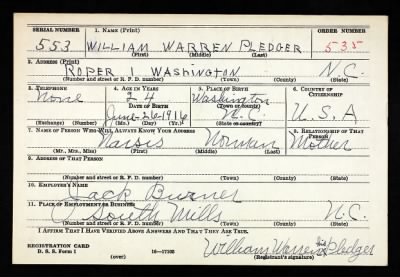 SERIAL NUMBER 1. NAME (Print) ORDER NUMBER
553 WILLIAM WARREN PLEDGER 535
(First) (Middle) (Last)
2. ADDRESS (Print)
ROPER WASHINGTON N.C.
(Number and street or R. F. D. number) (Town) (County) (State)
3. TELEPHONE 4. AGE IN YEARS 5. PLACE OF BIRTH 6. COUNTRY OF CITIZENSHIP
None 24 Washington
DATE OF BIRTH (Town or county)
June-26-1916 N.C. U.S.A
(Exchange) (Number) (Mo.) (Day) (Yr.) (State or country)
7. NAME OF PERSON WHO WILL ALWAYS KNOW YOUR ADDRESS 8. RELATIONSHIP OF THAT PERSON
Norman Mother
(Mr., Mrs., Miss) (First) (Middle) (Last)
9. ADDRESS OF THAT PERSON
(Number and street or R. F. D. number) (Town) (County) (State)
10. EMPLOYER'S NAME
Jack Burner
11. PLACE OF EMPLOYMENT OR BUSINESS
South Mills N.C.
(Number and street or R. F. D. number) (Town) (County) (State)
I AFFIRM THAT I HAVE VERIFIED ABOVE ANSWERS AND THAT THEY ARE TRUE.
REGISTRATION CARD William Warren Pledger
D. S. S. Form 1 (over) 16—17105 (Registrant's signature)